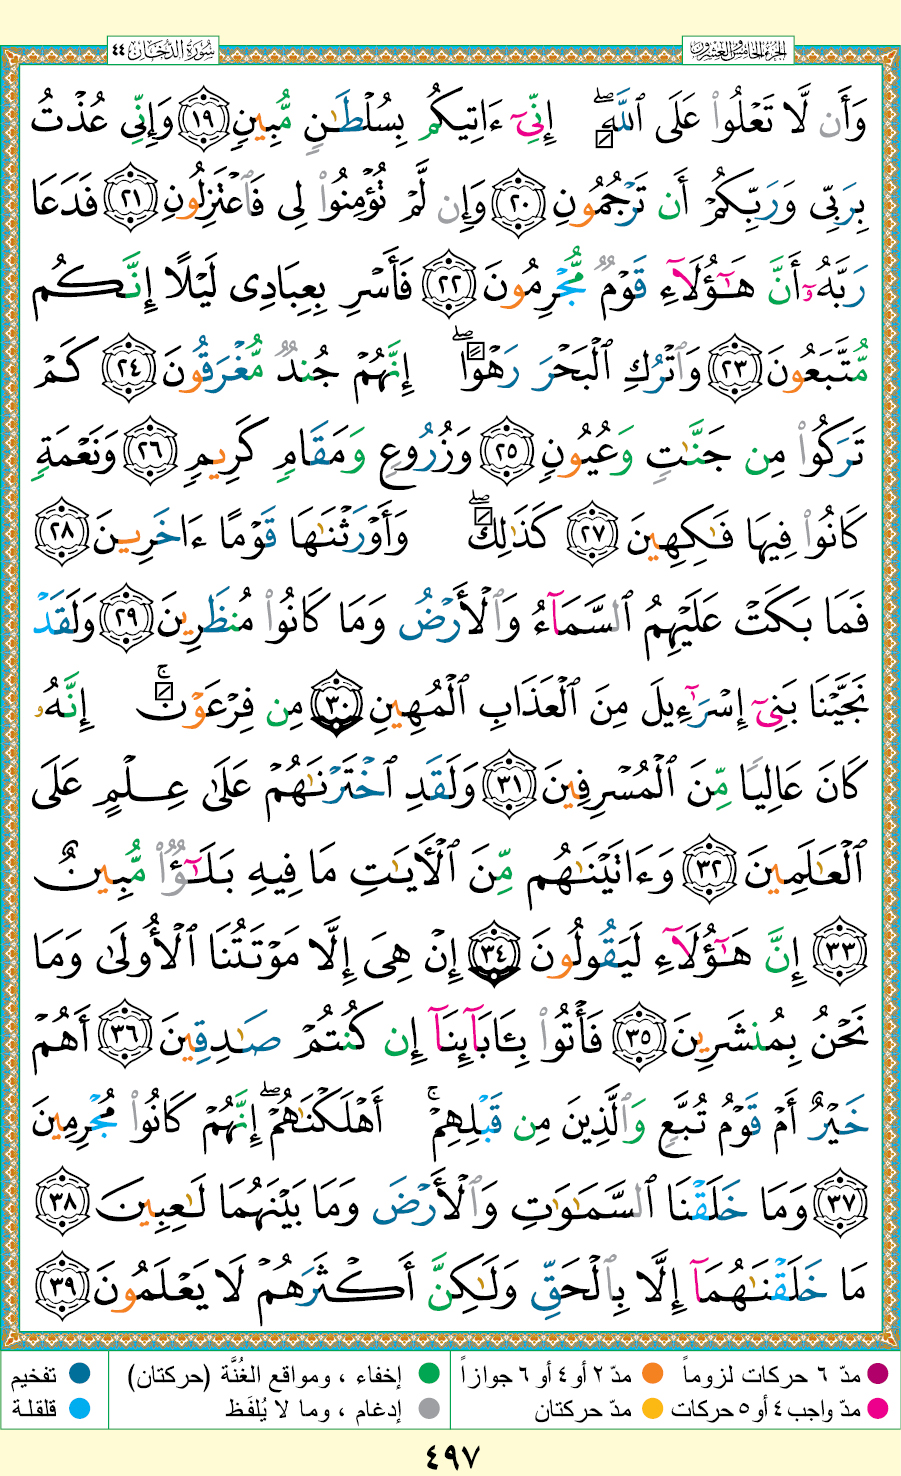 سُورَةُ الدُّخَانِ ٤٤
الجزء الخامس والعشرون
وَأَن لَّا تَعْلُوا۟ عَلَى ٱللَّهِ ۖ إِنِّىٓ ءَاتِيكُم بِسُلْطَـٰنٍ مُّبِينٍ ١٩ وَإِنِّى عُذْتُ
بِرَبِّى وَرَبِّكُمْ أَن تَرْجُمُونِ ٢٠ وَإِن لَّمْ تُؤْمِنُوا۟ لِى فَٱعْتَزِلُونِ ٢١ فَدَعَا
رَبَّهُۥٓ أَنَّ هَـٰٓؤُلَآءِ قَوْمٌ مُّجْرِمُونَ ٢٢ فَأَسْرِ بِعِبَادِى لَيْلًا إِنَّكُم
مُّتَّبَعُونَ ٢٣ وَٱتْرُكِ ٱلْبَحْرَ رَهْوًا ۖ إِنَّهُمْ جُندٌ مُّغْرَقُونَ ٢٤ كَمْ
تَرَكُوا۟ مِن جَنَّـٰتٍ وَعُيُونٍ ٢٥ وَزُرُوعٍ وَمَقَامٍ كَرِيمٍ ٢٦ وَنَعْمَةٍ
كَانُوا۟ فِيهَا فَـٰكِهِينَ ٢٧ كَذَٰلِكَ ۖ وَأَوْرَثْنَـٰهَا قَوْمًا ءَاخَرِينَ ٢٨
فَمَا بَكَتْ عَلَيْهِمُ ٱلسَّمَآءُ وَٱلْأَرْضُ وَمَا كَانُوا۟ مُنظَرِينَ ٢٩ وَلَقَدْ
نَجَّيْنَا بَنِىٓ إِسْرَٰٓءِيلَ مِنَ ٱلْعَذَابِ ٱلْمُهِينِ ٣٠ مِن فِرْعَوْنَ ۚ إِنَّهُۥ
كَانَ عَالِيًا مِّنَ ٱلْمُسْرِفِينَ ٣١ وَلَقَدِ ٱخْتَرْنَـٰهُمْ عَلَىٰ عِلْمٍ عَلَى
ٱلْعَـٰلَمِينَ ٣٢ وَءَاتَيْنَـٰهُم مِّنَ ٱلْـَٔايَـٰتِ مَا فِيهِ بَلَـٰٓؤٌا۟ مُّبِينٌ
٣٣ إِنَّ هَـٰٓؤُلَآءِ لَيَقُولُونَ ٣٤ إِنْ هِىَ إِلَّا مَوْتَتُنَا ٱلْأُولَىٰ وَمَا
نَحْنُ بِمُنشَرِينَ ٣٥ فَأْتُوا۟ بِـَٔابَآئِنَآ إِن كُنتُمْ صَـٰدِقِينَ ٣٦ أَهُمْ
خَيْرٌ أَمْ قَوْمُ تُبَّعٍ وَٱلَّذِينَ مِن قَبْلِهِمْ ۚ أَهْلَكْنَـٰهُمْ ۖ إِنَّهُمْ كَانُوا۟ مُجْرِمِينَ
٣٧ وَمَا خَلَقْنَا ٱلسَّمَـٰوَٰتِ وَٱلْأَرْضَ وَمَا بَيْنَهُمَا لَـٰعِبِينَ ٣٨
مَا خَلَقْنَـٰهُمَآ إِلَّا بِٱلْحَقِّ وَلَـٰكِنَّ أَكْثَرَهُمْ لَا يَعْلَمُونَ ٣٩
مدّ ٦ حركات لزوماً مدّ ٢ أو ٤ أو ٦ جوازاً إخفاء ، ومواقع الغُنَّة (حركتان) تفخيم
مدّ واجب ٤ أو ٥ حركات مدّ حركتان إدغام ، وما لا يُلفَظ قلقلة
٤٩٧